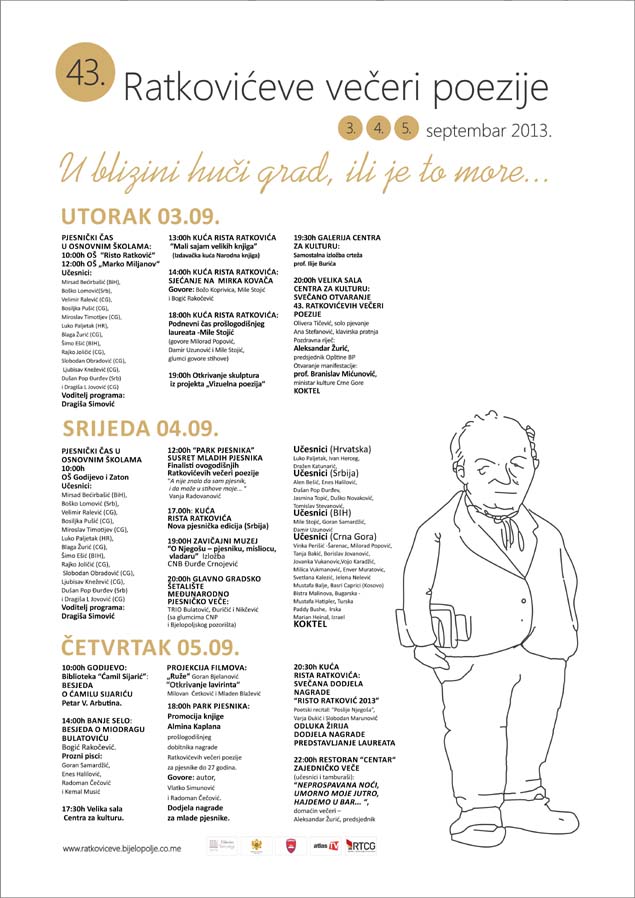 43. Ratkovićeve večeri poezije
3. 4. 5. septembar 2013.
U blizini huči grad, ili je to more...
UTORAK 03.09.
PJESNIČKI ČAS
U OSNOVNIM ŠKOLAMA:
10:00h OŠ "Risto Ratković"
12:00h OŠ „Marko Miljanov"
Učesnici:
Mirsad Bećirbašić (BIH),
Boško Lomović(Srb),
Velimir Ralević (CG),
Bosiljka Pušić (CG),
Miroslav Timotijev (CG),
Luko Paljetak (HR),
Blaga Žurić (CG),
Šimo Ešić (BIH),
Rajko Joličić (CG),
Slobodan Obradović (CG),
Ljubisav Knežević (CG),
Dušan Pop Đurđev (Srb)
i Dragiša L Jovović (CG)
Voditelj programa:
Dragiša Simović
13:00h KUĆA RISTA RATKOVIĆA
"Mali sajam velikih knjiga"
(Izdavačka kuća Narodna knjiga)
14:00h KUĆA RISTA RATKOVIĆA:
SJEĆANJE NA MIRKA KOVAČA
Govore: Božo Koprivica, Mile Stojić
i Bogić Rakočević
18:00h KUĆA RISTA RATKOVIĆA:
Podnevni čas prošlogodišnjeg
laureata -Mile Stojić
(govore Milorad Popović,
Damir Uzunović i Mile Stojić,
glumci govore stihove)
19:00h Otkrivanje skulptura
iz projekta „Vizuelna poezija"
19:30h GALERIJA CENTRA
ZA KULTURU:
Samostalna izložba crteža
prof. Ilije Burića
20:00h VELIKA SALA
CENTRA ZA KULTURU:
SVEČANO OTVARANJE
43. RATKOVIĆEVIH VEČERI
POEZIJE
Olivera Tičević, solo pjevanje
Ana Stefanović, klavirska pratnja
Pozdravna riječ:
Aleksandar Žurić,
predsjednik Opštine BP
Otvaranje manifestacije:
prof. Branislav Mićunović,
ministar kulture Crne Gore
KOKTEL
SRIJEDA 04.09.
PJESNIČKI ČAS U
OSNOVNIM ŠKOLAMA
10:00h
OŠ Godijevo i Zaton
Učesnici:
Mirsad Bećirbašić (BIH),
Boško Lomović (Srb),
Velimir Ralević (CG),
Bosiljka Pušić (CG),
Miroslav Timotijev (CG),
Luko Paljetak (HR),
Blaga Žurić (CG),
Šimo Ešić (BIH),
Rajko Joličić (CG),
Slobodan Obradović (CG),
Ljubisav Knežević (CG),
Dušan Pop Đurđev (Srb)
i Dragiša L Jovović (CG)
Voditelj programa:
Dragiša Simović
12:00h "PARK PJESNIKA"
SUSRET MLADIH PJESNIKA
Finalisti ovogodišnjih
Ratkovićevih večeri poezije
"A nije znalo da sam pjesnik,
i da može u stihove moje... "
Vanja Radovanović
17.00h: KUĆA
RISTA RATKOVIĆA
Nova pjesnička edicija (Srbija)
19:00H ZAVIČAJNI MUZEJ
"O Njegošu – pjesniku, misliocu,
vladaru" Izložba
CNB Đurđe Crnojević
20:00h GLAVNO GRADSKO
ŠETALIŠTE
MEĐUNARODNO
PJESNIČKO VEČE:
TRIO Bulatović, Đuričić i Nikčević
(sa glumcima CNP
i Bjelopoljskog pozorišta)
Učesnici (Hrvatska)
Luko Paljetak, Ivan Herceg,
Dražen Katunarić,
Učesnici (Srbija)
Alen Bešić, Enes Halilović,
Dušan Pop Đurđev,
Jasmina Topić, Duško Novaković,
Tomislav Stevanović,
Učesnici (BIH)
Mile Stojić, Goran Samardžić,
Damir Uzunović
Učesnici (Crna Gora)
Vinka Perišić -Šarenac, Milorad Popović,
Tanja Bakić, Borislav Jovanović,
Jovanka Vukanovic,Vojo Karadžić,
Milica Vukmanović, Enver Muratovic,
Svetlana Kalezić, Jelena Nelević
Mustafa Balje, Basri Caprici (Kosovo)
Bistra Malinova, Bugarska -
Mustafa Hatipler, Turska
Paddy Bushe, Irska
Marian Heinal, Israel
KOKTEL
ČETVRTAK 05.09.
10:00h GODIJEVO:
Biblioteka "Ćamil Sijarić":
BESJEDA
O ĆAMILU SIJARIĆU
Petar V. Arbutina.
14:00h BANJE SELO:
BESJEDA O MIODRAGU
BULATOVIĆU
Bogić Rakočević.
Prozni pisci:
Goran Samardžić,
Enes Halilović,
Radoman Čečović
i Kemal Musić
17:30h Velika sala
Centra za kulturu.
PROJEKCIJA FILMOVA:
„Ruže" Goran Bjelanović
"Otkrivanje lavirinta"
Milovan Ćetković i Mladen Blažević
18:00h PARK PJESNIKA:
Promocija knjige
Almina Kaplana
prošlogodišnjeg
dobitnika nagrade
Ratkovićevih večeri poezije
za pjesnike do 27 godina.
Govore: autor,
Vlatko Simunović
i Radoman Čečović.
Dodjela nagrade
za mlade pjesnike.
20:30h KUĆA
RISTA RATKOVIĆA:
SVEČANA DODJELA
NAGRADE
"RISTO RATKOVIĆ 2013"
Poetski recital: "Poslije Njegoša",
Varja Đukić i Slobodan Marunović
ODLUKA ŽIRIJA
DODJELA NAGRADE
PREDSTAVLJANJE LAUREATA
22:00H RESTORAN "CENTAR"
ZAJEDNIČKO VEČE
(učesnici i tamburaši):
"NEPROSPAVANA NOĆI,
UMORNO MOJE JUTRO,
HAJDEMO U BAR... ",
domaćin večeri –
Aleksandar Žurić, predsjednik
www.ratkoviceve.bijelopolje.co.me
atlas TV
RTCG